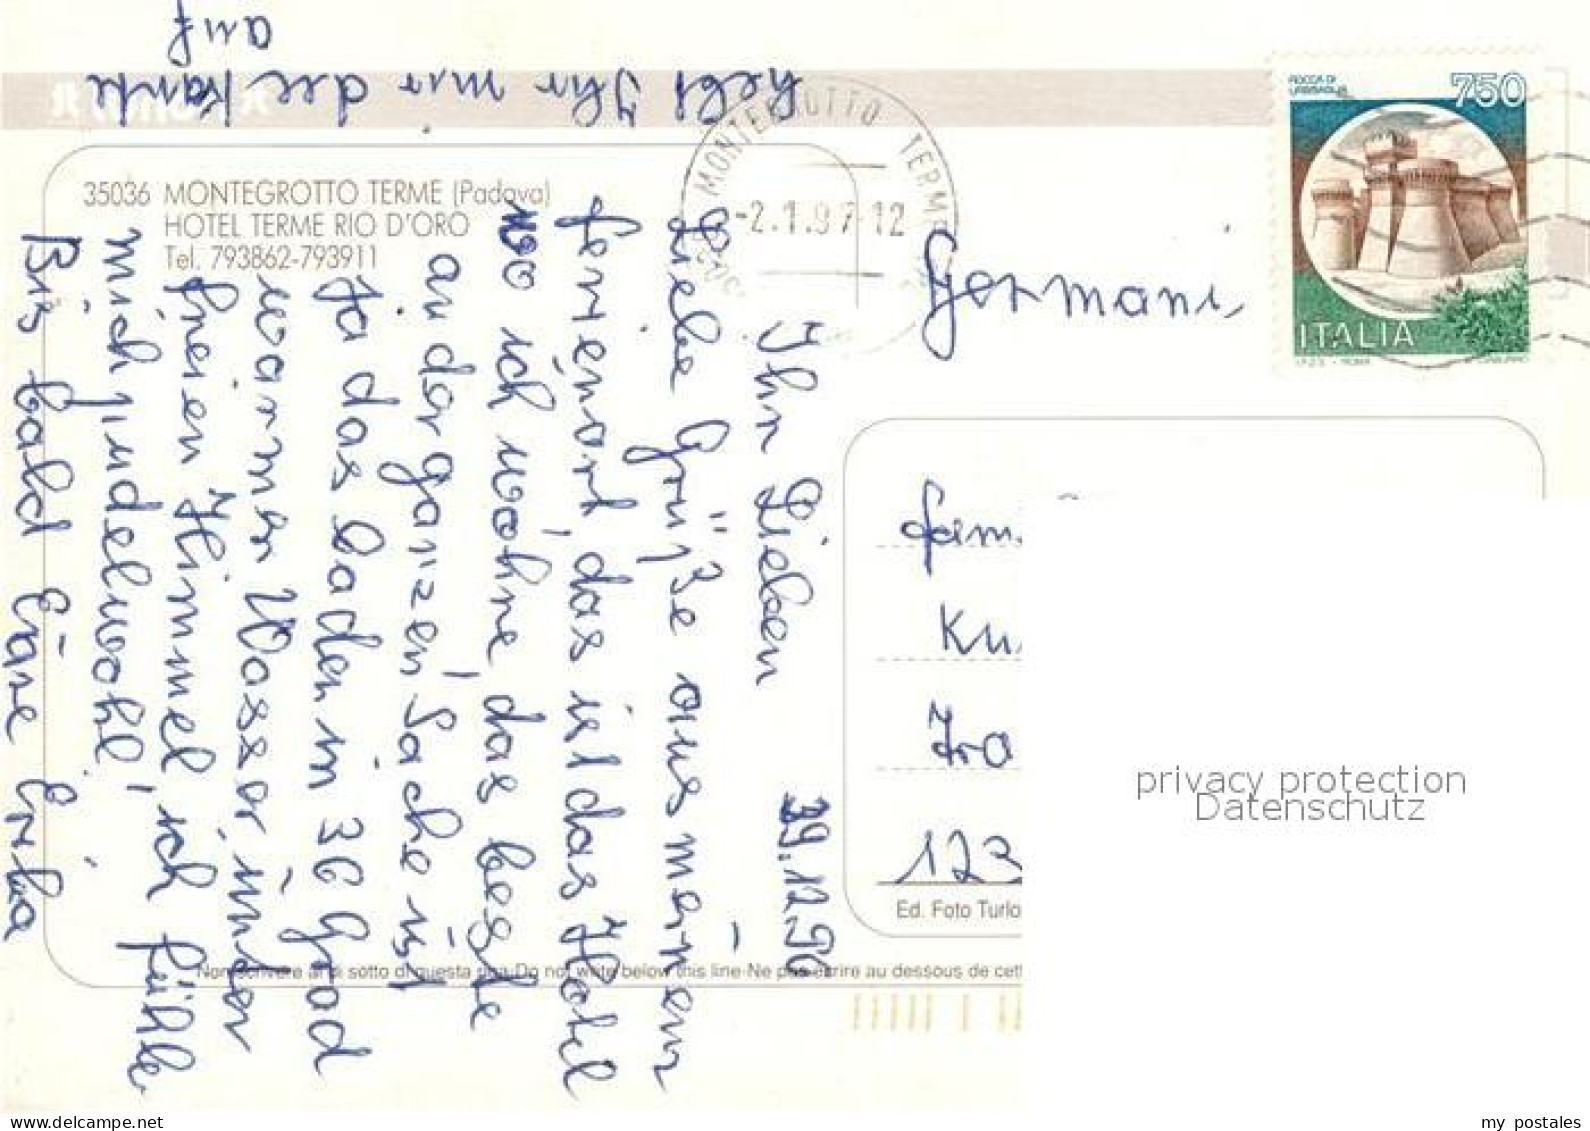 hebt Ihr mir die Karte
auf
35036 MONTEGROTTO TERME (Padova)
HOTEL TERME RIO D'ORO
Tel. 793862-793911
MONTEGROTTO TERME
-2.1.97-12
ROCCA DI
URBISAGLIA
750
ITALIA
I.P.Z.S. - ROMA
Germani
Ihr Lieben 29.12.96
Liebe Grüße aus meinem
Ferienort, das ist das Hotel
wo ich wohne, das beste
an der ganzen Sache ist
ja das baden in 36 Grad
warmen Wasser unter
freien Himmel, ich fühle
mich pudelwohl,
Bis bald Eure Erika
Fam.
Ku
Tra
123
privacy protection
Datenschutz
Ed. Foto Turlo
Non scrivere al di sotto di questa riga-Do not write below this line-Ne pas écrire au dessous de cett
my postales